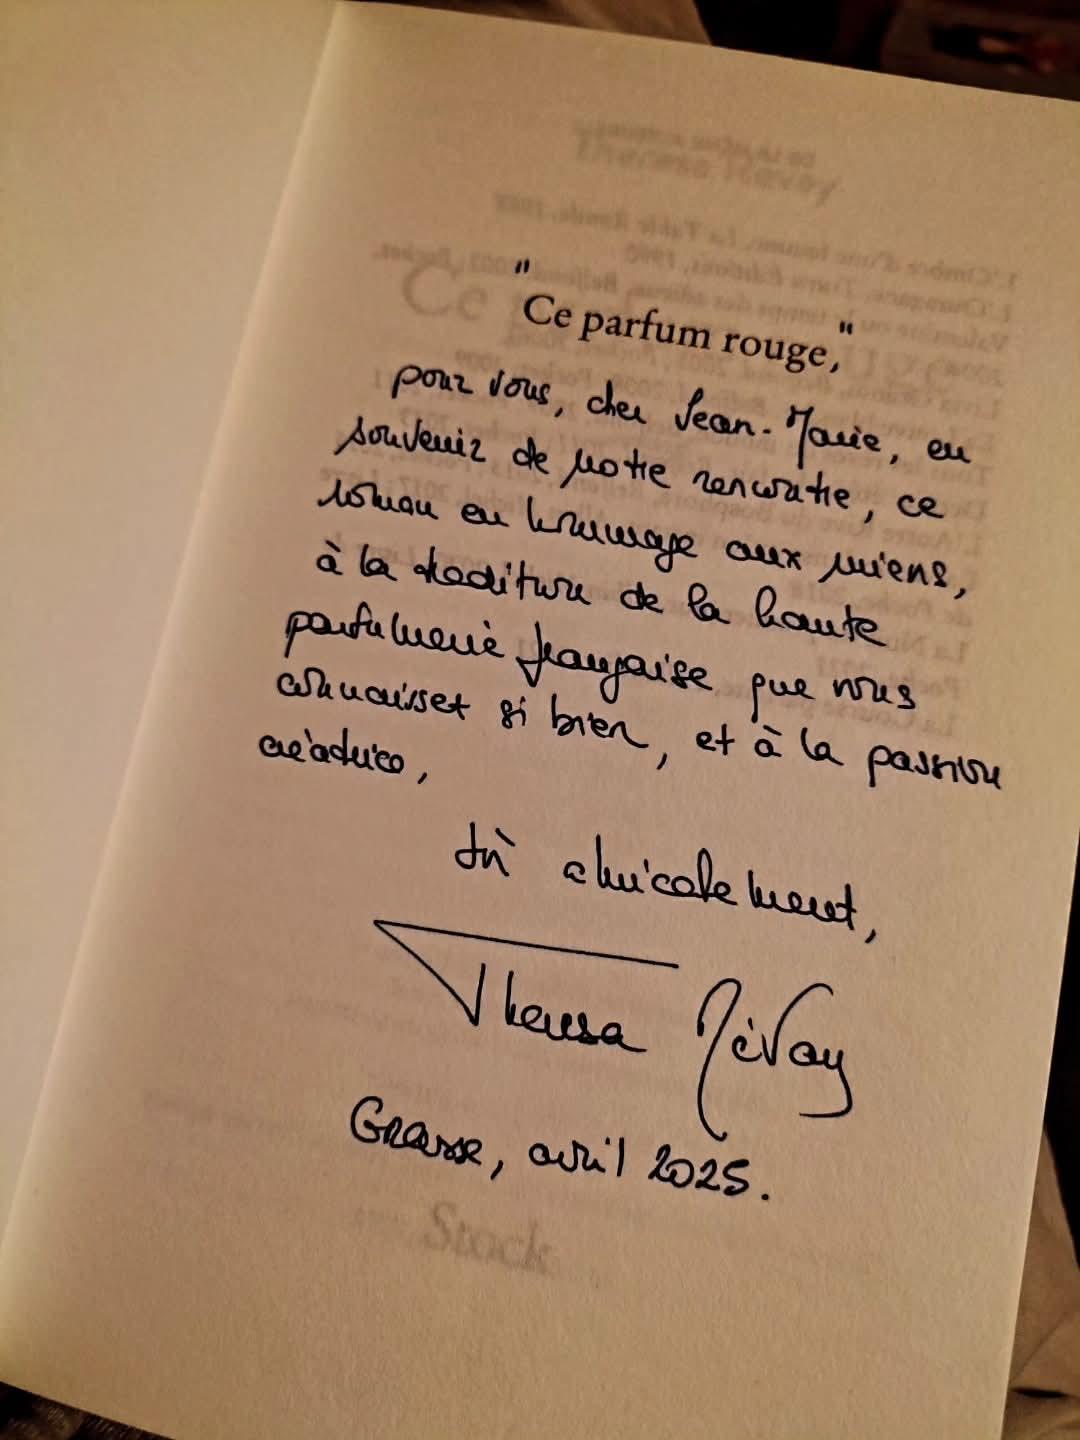 "Ce parfum rouge,"
pour vous, cher Jean-Marie, en
souvenir de notre rencontre, ce
roman en hommage aux miens,
à la tradition de la haute
parfumerie française que vous
connaissez si bien, et à la passion
créatrice,
très amicalement,
Theresa Révay
Grasse, avril 2025.
Stock